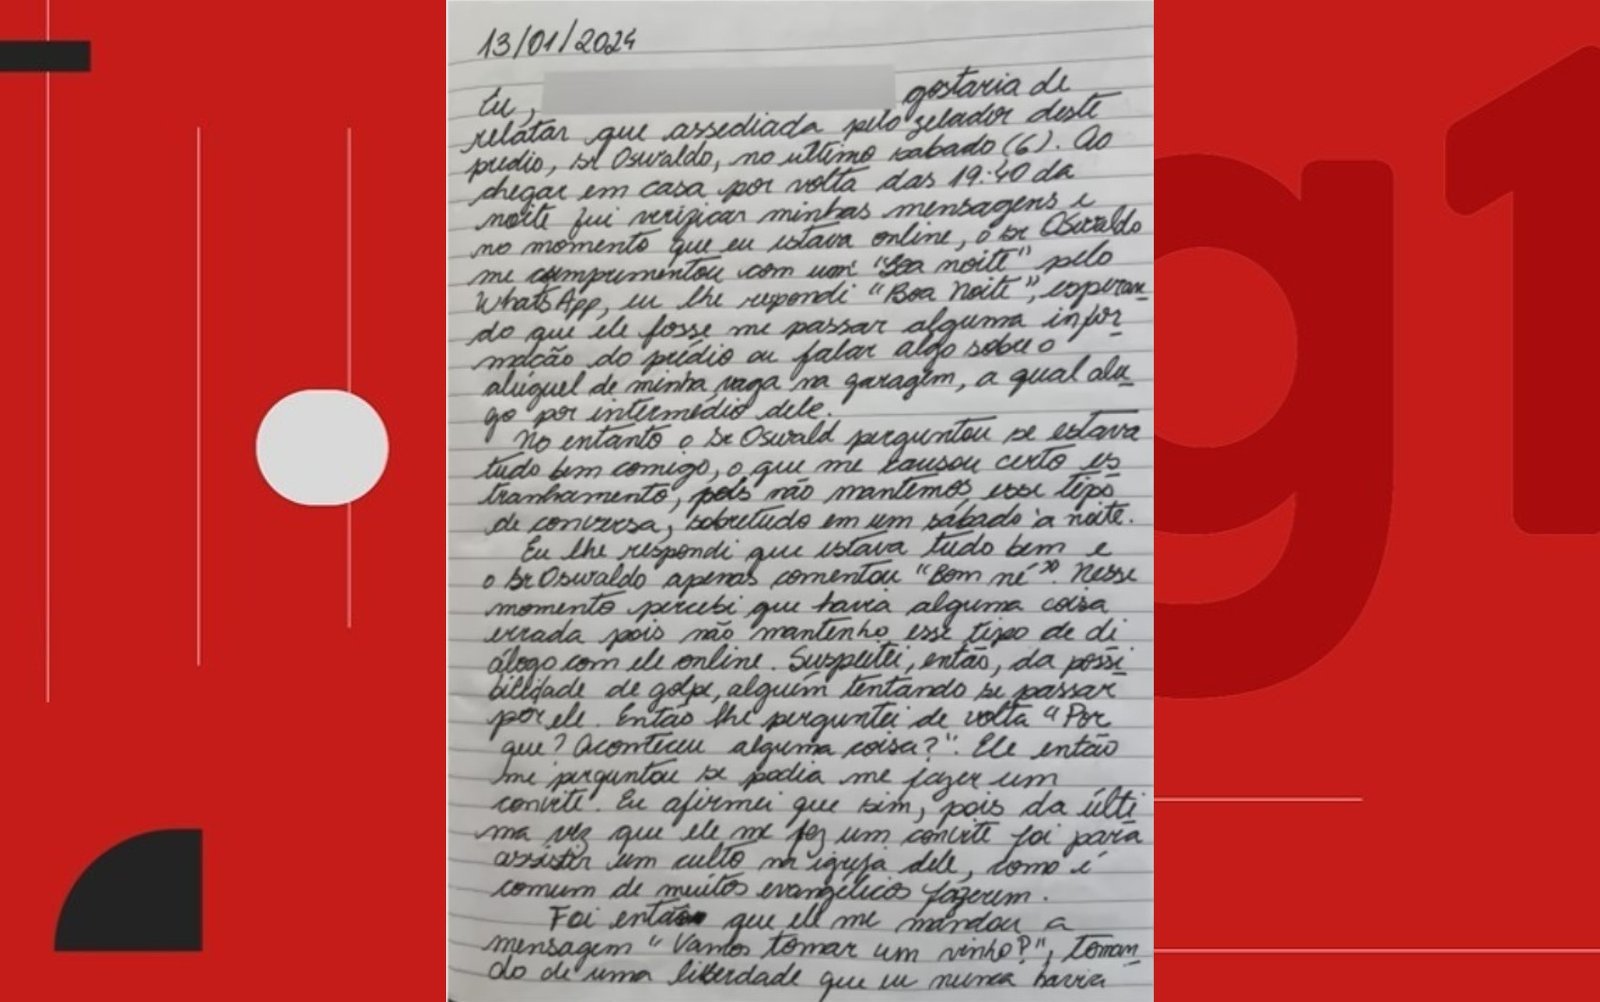 13/01/2024
Eu, gostaria de
relatar que assediada pelo zelador deste
predio, sr Oswaldo, no ultimo sabado (6). Ao
chegar em casa por volta das 19:40 da
noite fui verificar minhas mensagens e
no momento que eu estava online, o sr Oswaldo
me cumprimentou com um "Boa noite" pelo
WhatsApp, eu lhe repondi "Boa Noite", esperan-
do que ele fosse me passar alguma infor-
mação do prédio ou falar algo sobre o
aluguel de minha vaga na garagem, a qual alu-
go por intermédio dele.
No entanto o Sr Oswald perguntou se estava
tudo bem comigo, o que me causou certo es
tranhamento, pois não mantemos esse tipo
de conversa, sobretudo em um sábado à noite.
Eu lhe respondi que estava tudo bem e
o Sr Oswaldo apenas comentou "Bom né". Nesse
momento percebi que havia alguma coisa
errada pois não mantenho esse tipo de di
álogo com ele online. Suspeitei, então, da possi-
bilidade de golpe, alguém tentando se passar
por ele. Então lhe perguntei de volta "Por
que? Aconteceu alguma coisa?". Ele então
me perguntou se podia me fazer um
convite. Eu afirmei que sim, pois da últi
ma vez que ele me fez um convite foi para
assistir um culto na igreja dele, como é
comum de muitos evangélicos fazerem.
Foi então que ele me mandou a
mensagem "Vamos tomar um vinho?", toman-
do de uma liberdade que eu nunca havia
g1